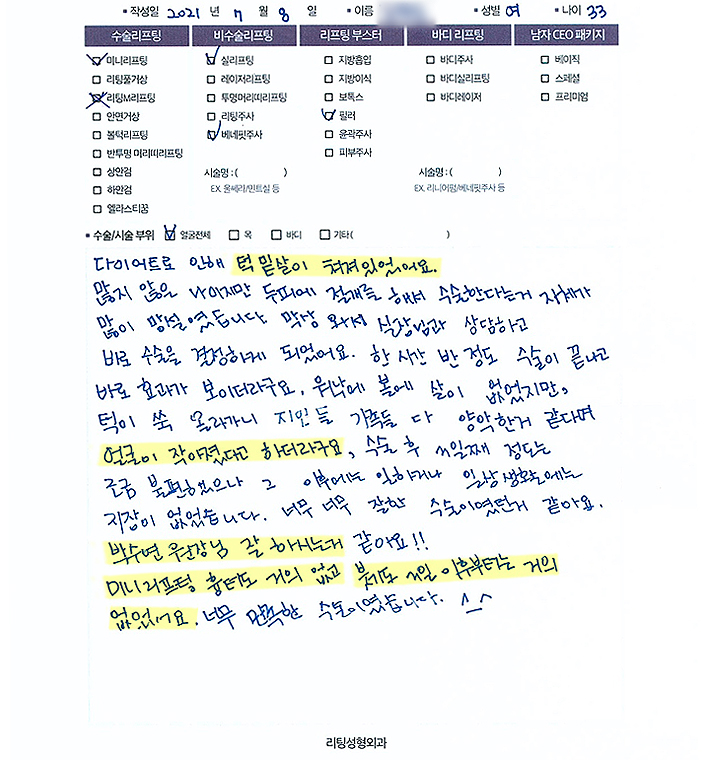 ▪ 작성일 2021 년 7 월 8 일 ▪ 이름 ▪ 성별 여 ▪ 나이 33
수술리프팅 비수술리프팅 리프팅 부스터 바디 리프팅 남자 CEO 패키지
미니리프팅 실리프팅 지방흡입 바디주사 베이직
리팅풀거상 레이저리프팅 지방이식 바디실리프팅 스페셜
리팅M리프팅 투명머리띠리프팅 보톡스 바디레이저 프리미엄
안면거상 리팅주사 필러
볼턱리프팅 베네핏주사 윤곽주사
반투명 머리띠리프팅 피부주사
상안검 시술명 : ( ) 시술명 : ( )
하안검 EX. 울쎄라/민트실 등 EX. 리니어펌/베네핏주사 등
엘라스티꿈
▪ 수술/시술 부위 얼굴전체 목 바디 기타 ( )
다이어트로 인해 턱 밑살이 쳐져있었어요.
많지 않은 나이지만 두피에 절개를 해서 수술한다는거 자체가
많이 망설였습니다. 막상 와서 실장님과 상담하고
바로 수술을 결정하게 되었어요. 한 시간 반 정도 수술이 끝나고
바로 효과가 보이더라구요. 워낙에 볼에 살이 없었지만,
턱이 쏙 올라가니 지인들 가족들 다 양악한거 같다며
얼굴이 작아졌다고 하더라구요, 수술 후 4일째 정도는
조금 불편했으나 그 이후에는 일하거나 일상생활에는
지장이 없었습니다. 너무 너무 잘한 수술이였던거 같아요.
박수연 원장님 잘 하시는거 같아요!!
미니리프팅 흉터도 거의 없고 붓기도 4일 이후부터는 거의
없었어요. 너무 만족한 수술이였습니다. ^_^
리팅성형외과